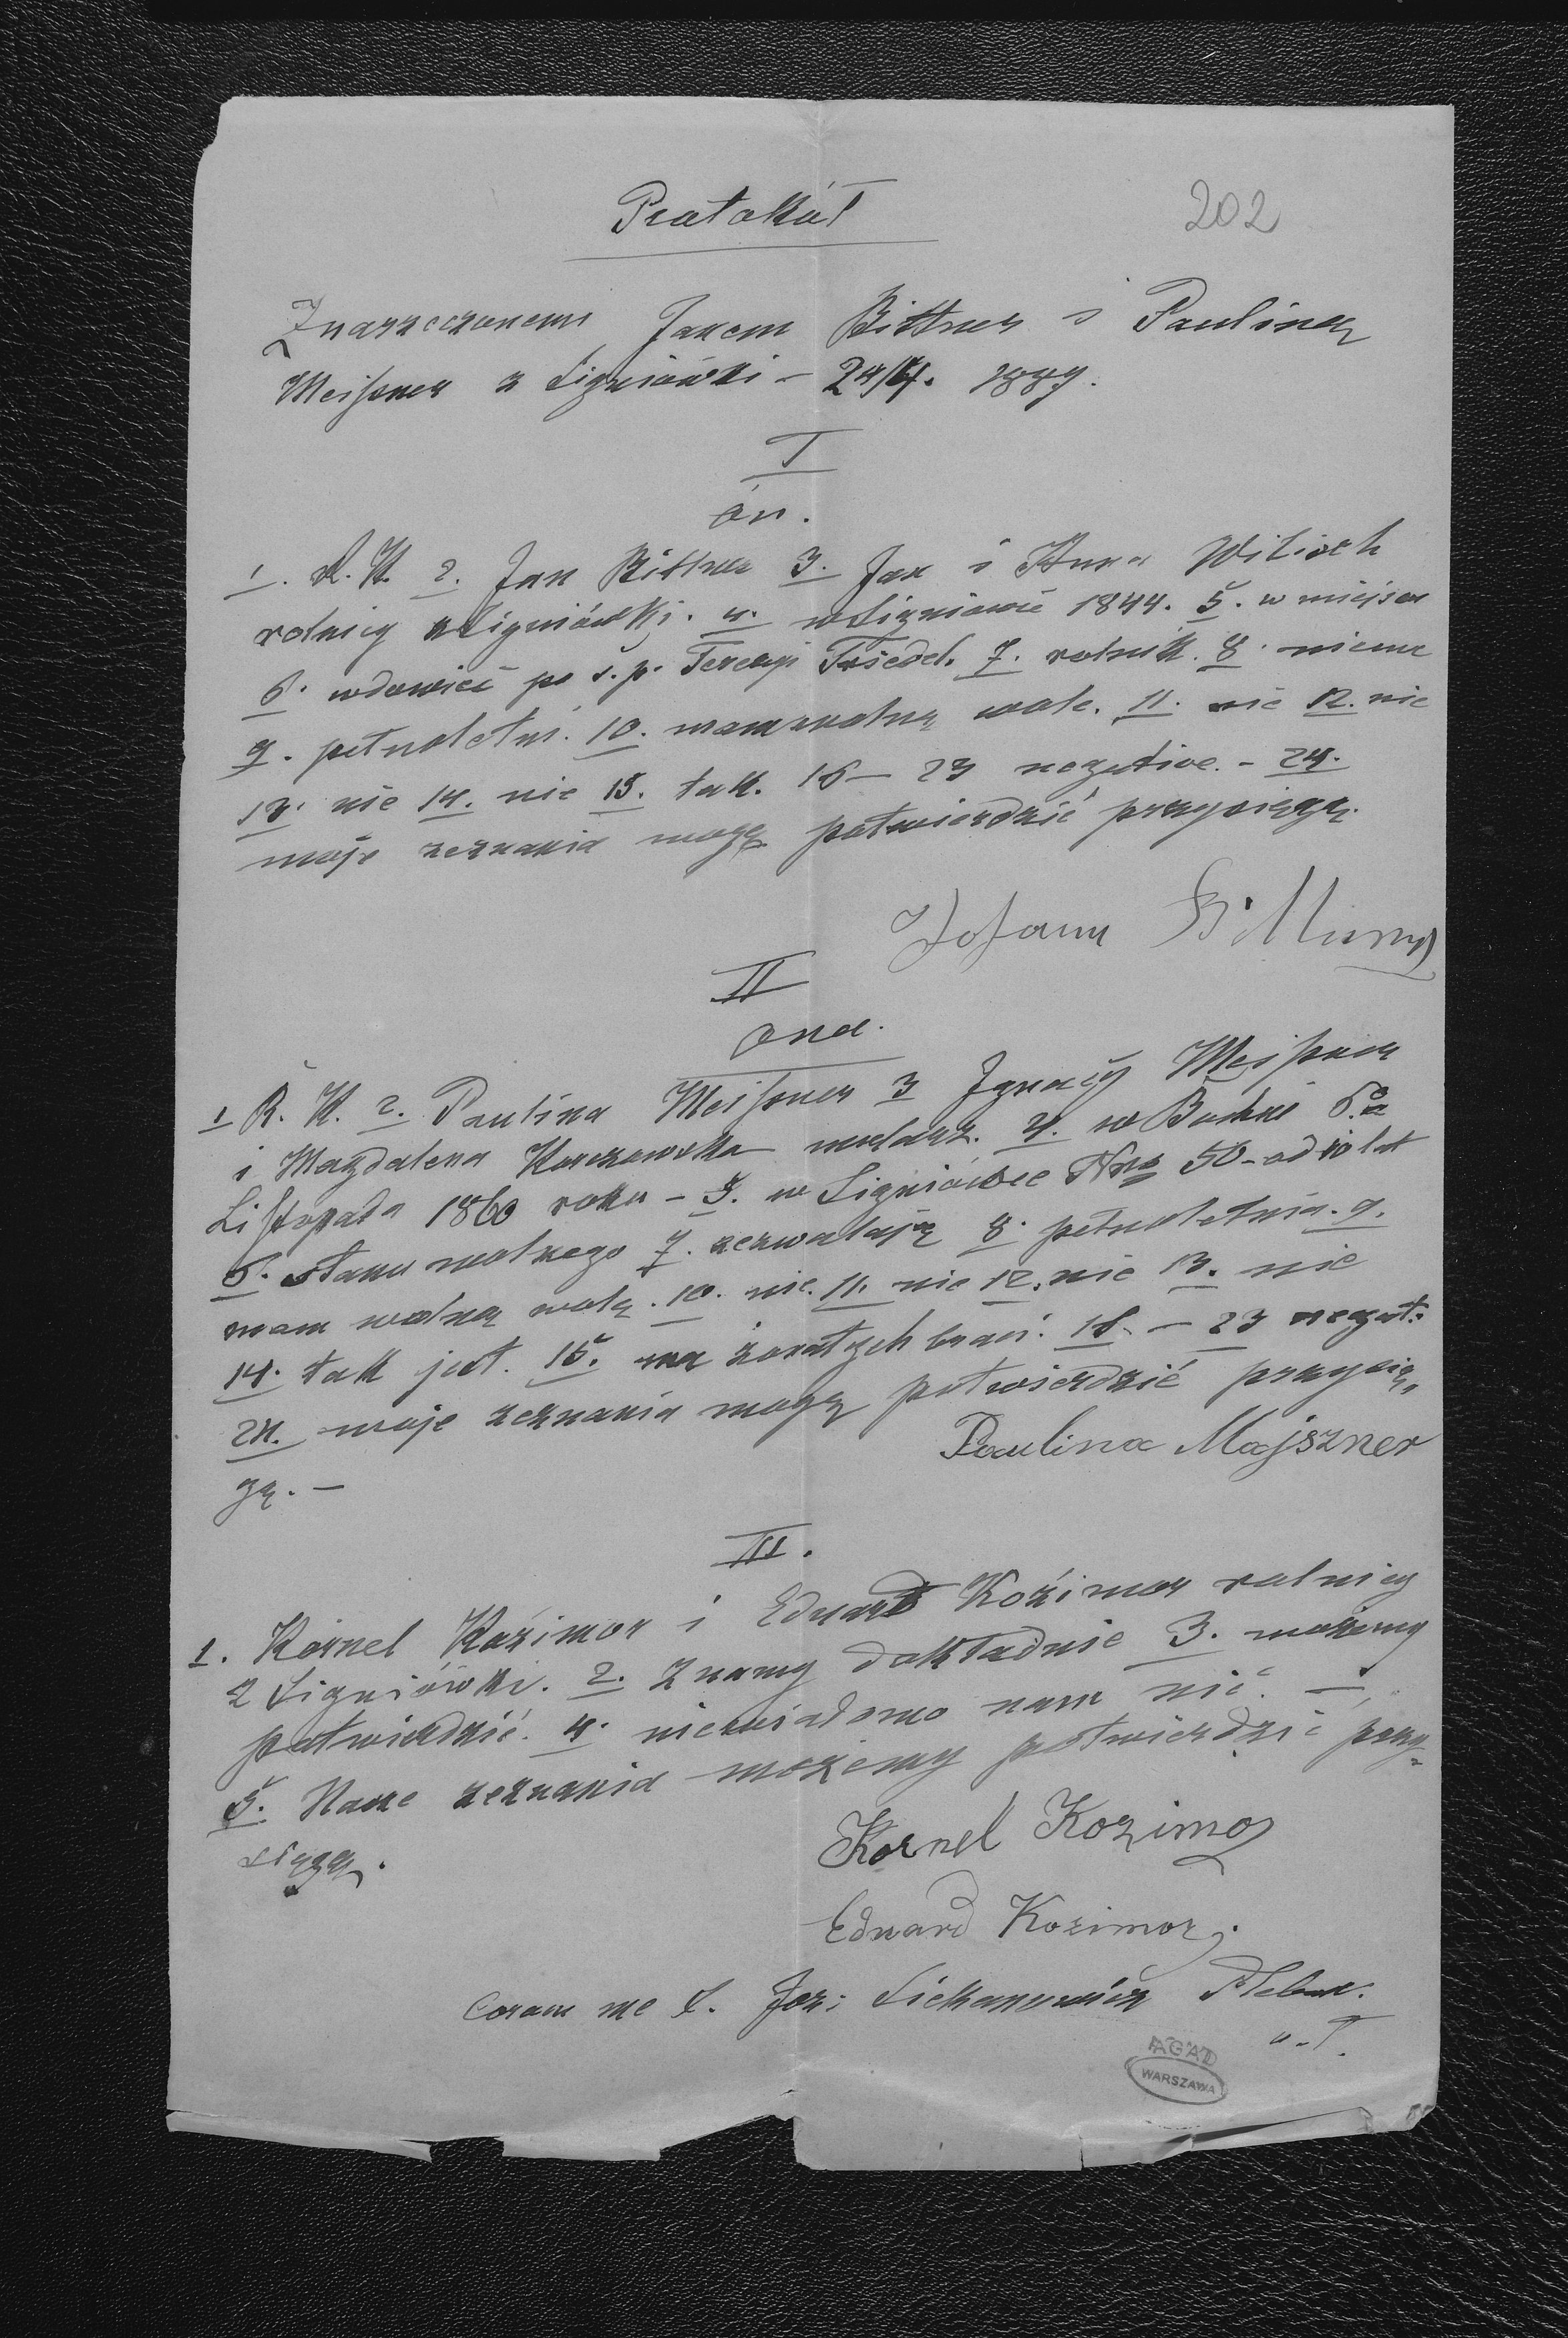 Protokół
202
Z narzeczonemi Janem Bittner i Pauliną
Meißner z Signiówki – 24/4. 1889.
I
ón.
1. R. K. 2. Jan Bittner 3. Jan i Anna Wilisch
rolnicy z Signiówki. 4. w Signiówce 1844. 5. w miejscu
6. wdowiec po ś. p. Terezyi Friedel. 7. rolnik. 8. niema
9. pełnoletni. 10. mam wolną wole. 11. nie 12. nie
13. nie 14. nie 15. tak. 16 – 23 negative. – 24.
moje zeznania mogę potwierdzić przysięgą.
Johann Bittner
II
ona.
1 R. K. 2. Paulina Meißner 3 Ignacy Meißner
i Magdalena 4. w 6.
Listopada 1860 roku – 5. w Signiówce Nro 50 – od 10 lat
6. stanu wolnego 7. zezwalają 8. pełnoletnia. 9.
mam wolną wolę. 10. nie. 11. nie 12. nie 13. nie
14. tak jest. 15. 16. – 23 negat:
24. moje zeznania mogę potwierdzić przysię„
gą. –
Paulina Majszner
III.
1. Kornel Kozimor i Eduard Kozimor rolnicy
z Signiówki. 2. Znamy dokładnie 3. możemy
potwierdzić. 4. niewiadomo nam nić. –
5. Nasze zeznania możemy potwierdzić przy„
sięgą.
Kornel Kozimor
Eduard Kozimor
Coram me
AGAD
WARSZAWA